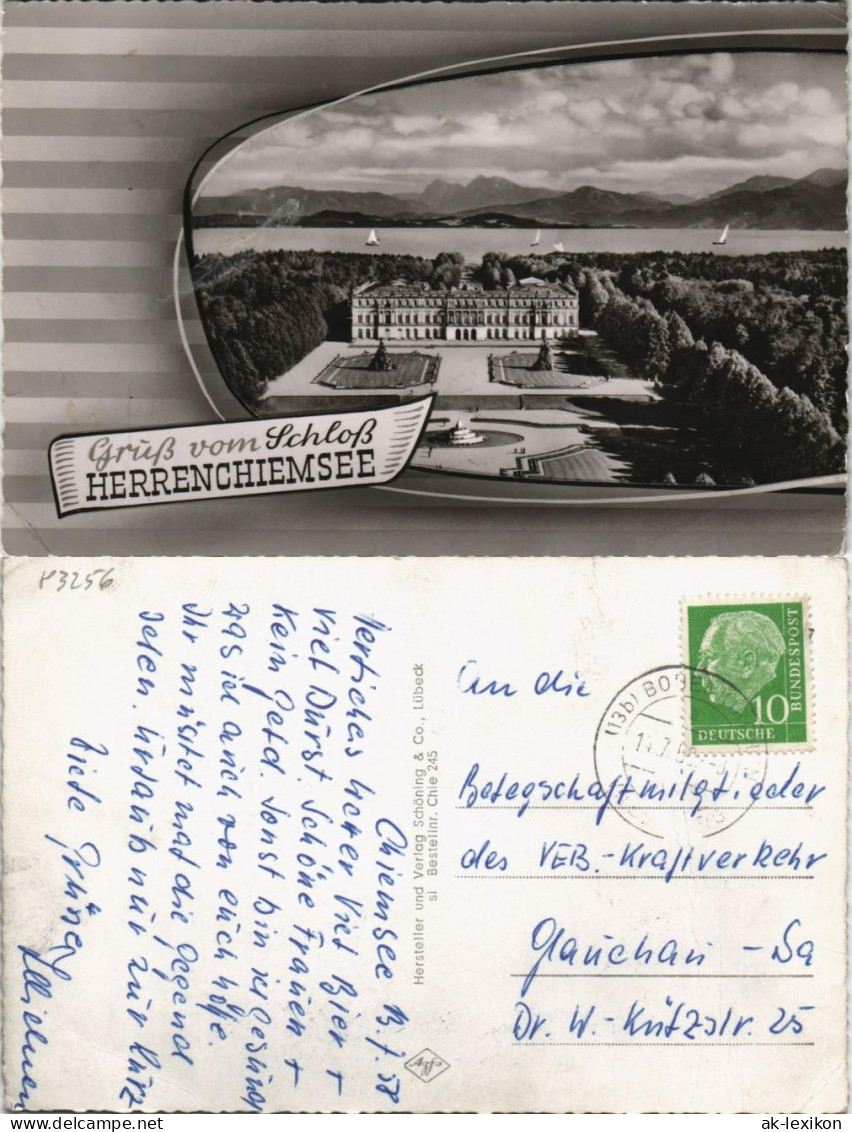 Gruß vom Schloß
HERRENCHIEMSEE
P3256
Chiemsee 13.7.58
Herrliches hier Viel Bier +
viel Durst. Schöne Frauen +
kein Geld. Sonst bin ich gesund
was ich auch von euch hoffe.
Ihr müsstet mal die Gegend
sehen. Urlaub nur zur kurz
Viele Grüße
Hersteller und Verlag Schöning & Co., Lübeck
si Bestellnr. Chie 245
(13b)
10
BUNDESPOST
DEUTSCHE
An die
Belegschaftmitglieder
des VEB.-Kraftverkehr
Glauchau - Sa
Dr. W.-Külzstr. 25
ak-lexikon.com